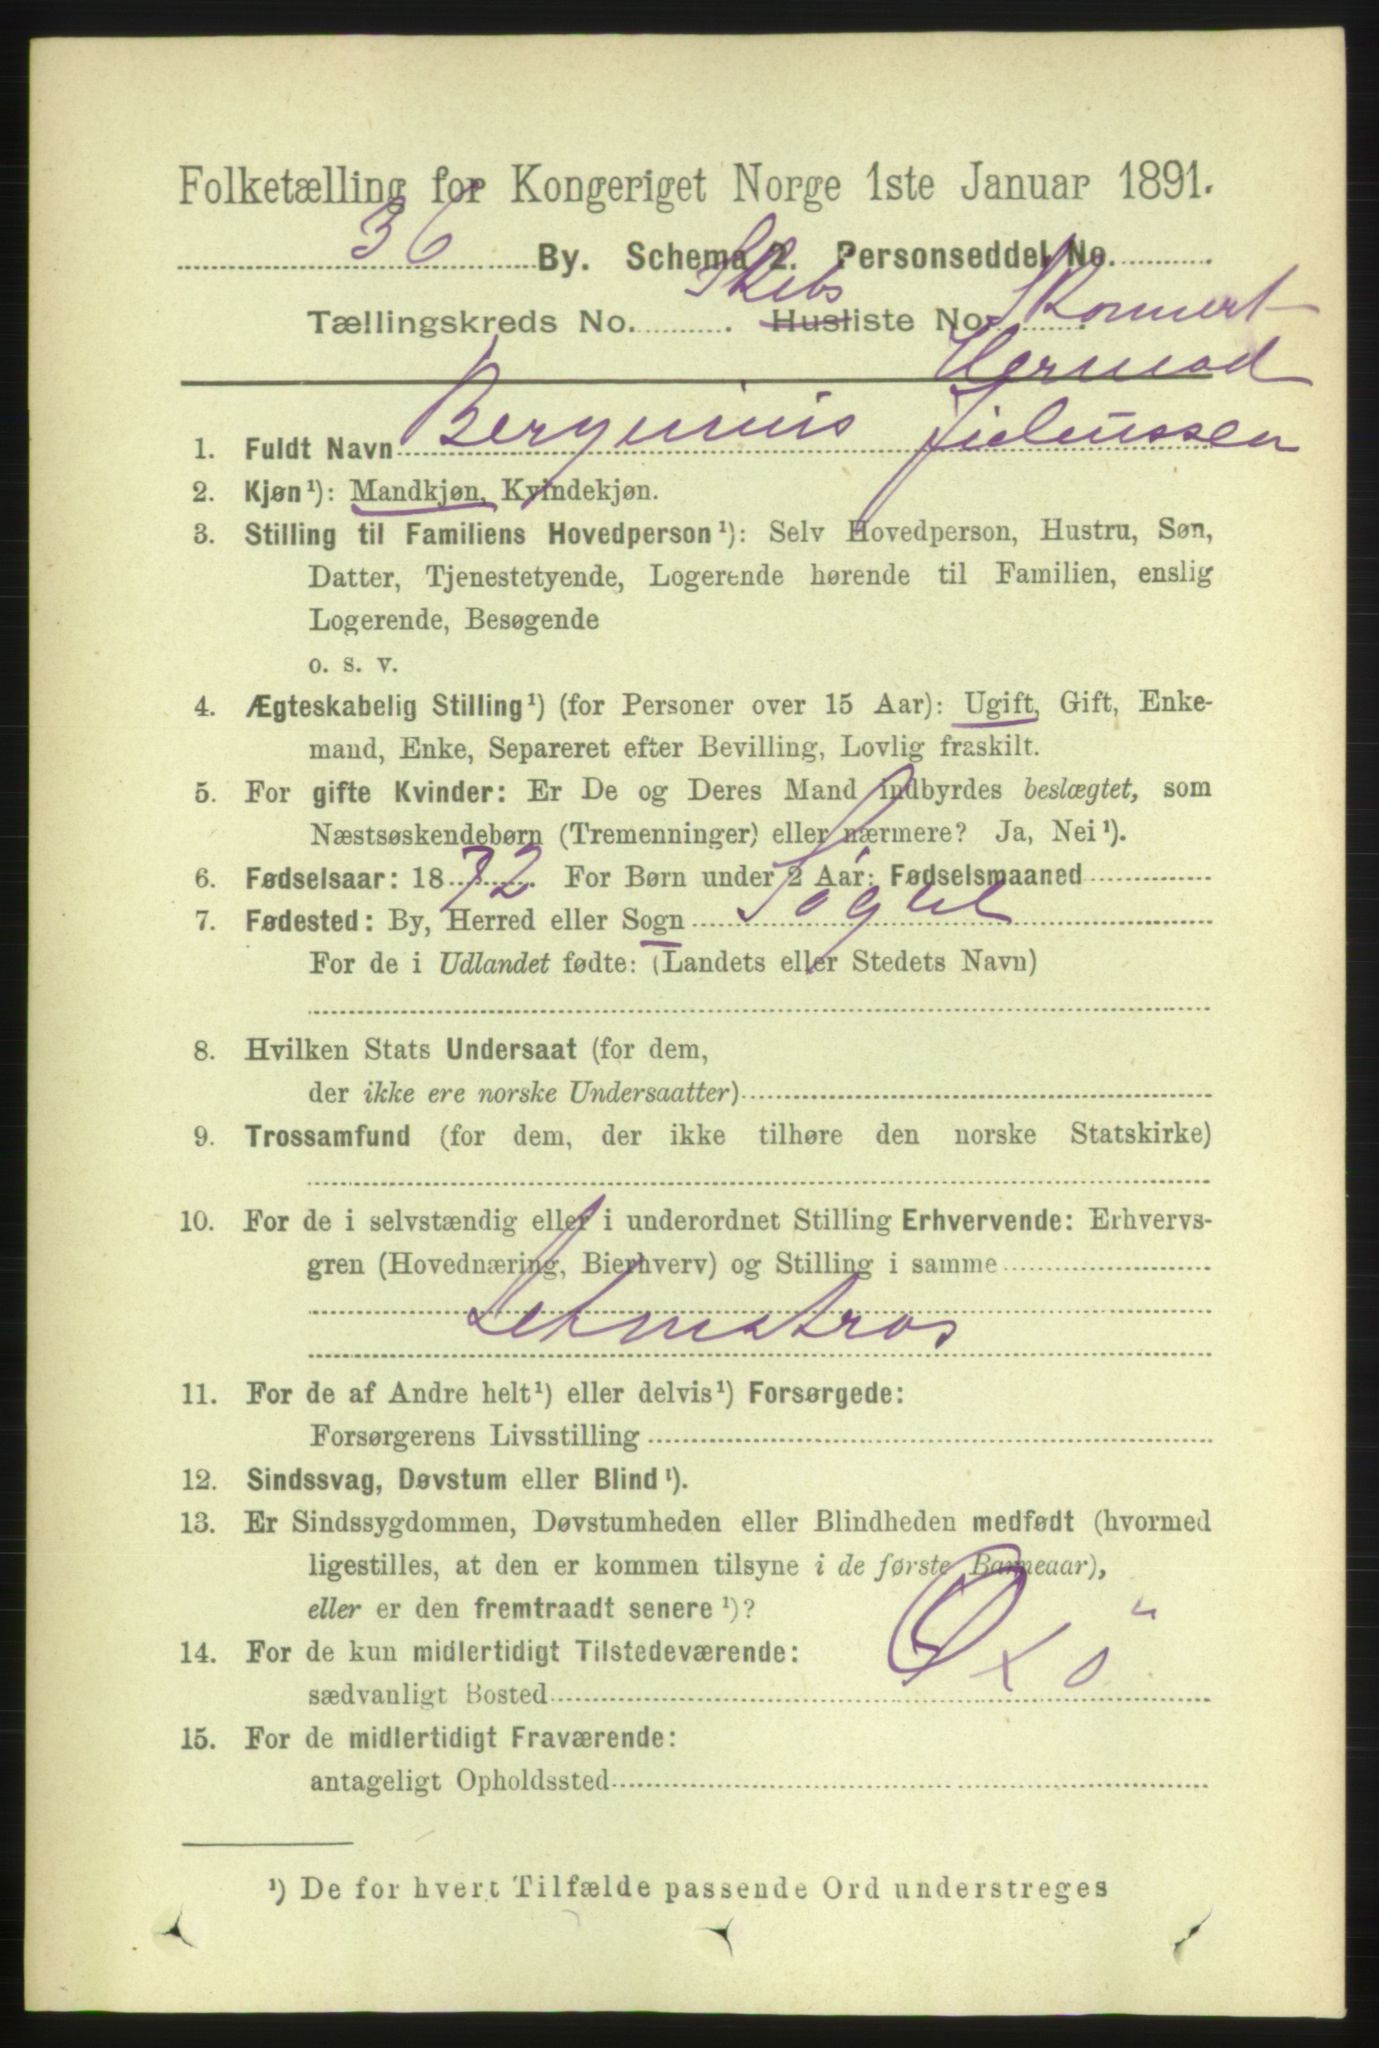 Folketælling for Kongeriget Norge 1ste Januar 1891.
36 By. Schema 2. Personseddel No.
Skibs Skonnert
Tællingskreds No. Husliste No.
Hermod
1. Fuldt Navn Bergunius Juliussen
2. Kjøn¹): Mandkjøn, Kvindekjøn.
3. Stilling til Familiens Hovedperson¹): Selv Hovedperson, Hustru, Søn,
Datter, Tjenestetyende, Logerende hørende til Familien, enslig
Logerende, Besøgende
o. s. v.
4. Ægteskabelig Stilling¹) (for Personer over 15 Aar): Ugift, Gift, Enke-
mand, Enke, Separeret efter Bevilling, Lovlig fraskilt.
5. For gifte Kvinder: Er De og Deres Mand indbyrdes beslægtet, som
Næstsøskendebørn (Tremenninger) eller nærmere? Ja, Nei¹).
6. Fødselsaar: 1872. For Børn under 2 Aar: Fødselsmaaned
7. Fødested: By, Herred eller Sogn Søgne
For de i Udlandet fødte: (Landets eller Stedets Navn)
8. Hvilken Stats Undersaat (for dem,
der ikke ere norske Undersaatter)
9. Trossamfund (for dem, der ikke tilhøre den norske Statskirke)
10. For de i selvstændig eller i underordnet Stilling Erhvervende: Erhvervs-
gren (Hovednæring, Bierhverv) og Stilling i samme
Letmatros
11. For de af Andre helt¹) eller delvis¹) Forsørgede:
Forsørgerens Livsstilling
12. Sindssvag, Døvstum eller Blind¹).
13. Er Sindssygdommen, Døvstumheden eller Blindheden medfødt (hvormed
ligestilles, at den er kommen tilsyne i de første Barneaar),
eller er den fremtraadt senere¹)?
14. For de kun midlertidigt Tilstedeværende:
sædvanligt Bosted
15. For de midlertidigt Fraværende:
antageligt Opholdssted
¹) De for hvert Tilfælde passende Ord understreges